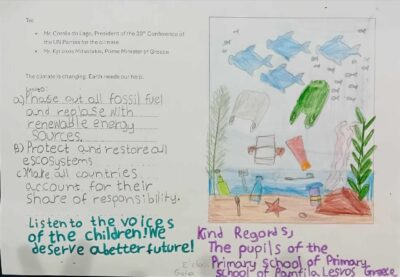 To:
Mr. Corrêa do Lago, President of the 30th Conference of
the UN Parties for the climate
Mr. Kyriakos Mitsotakis, Prime Minister of Greece
The climate is changing. Earth needs our help.
a) Phase out all fossil fuel
and replase with
renewable energy
sources.
B) Protect and restore all
escosystems
c) Make all countries
account for their
share of responsibility.
Listen to the voices
of the children! We
deserve a better future!
Kind Regards,
The pupils of the
Primary School of Primary
school of Pamfila, Lesvos Greece